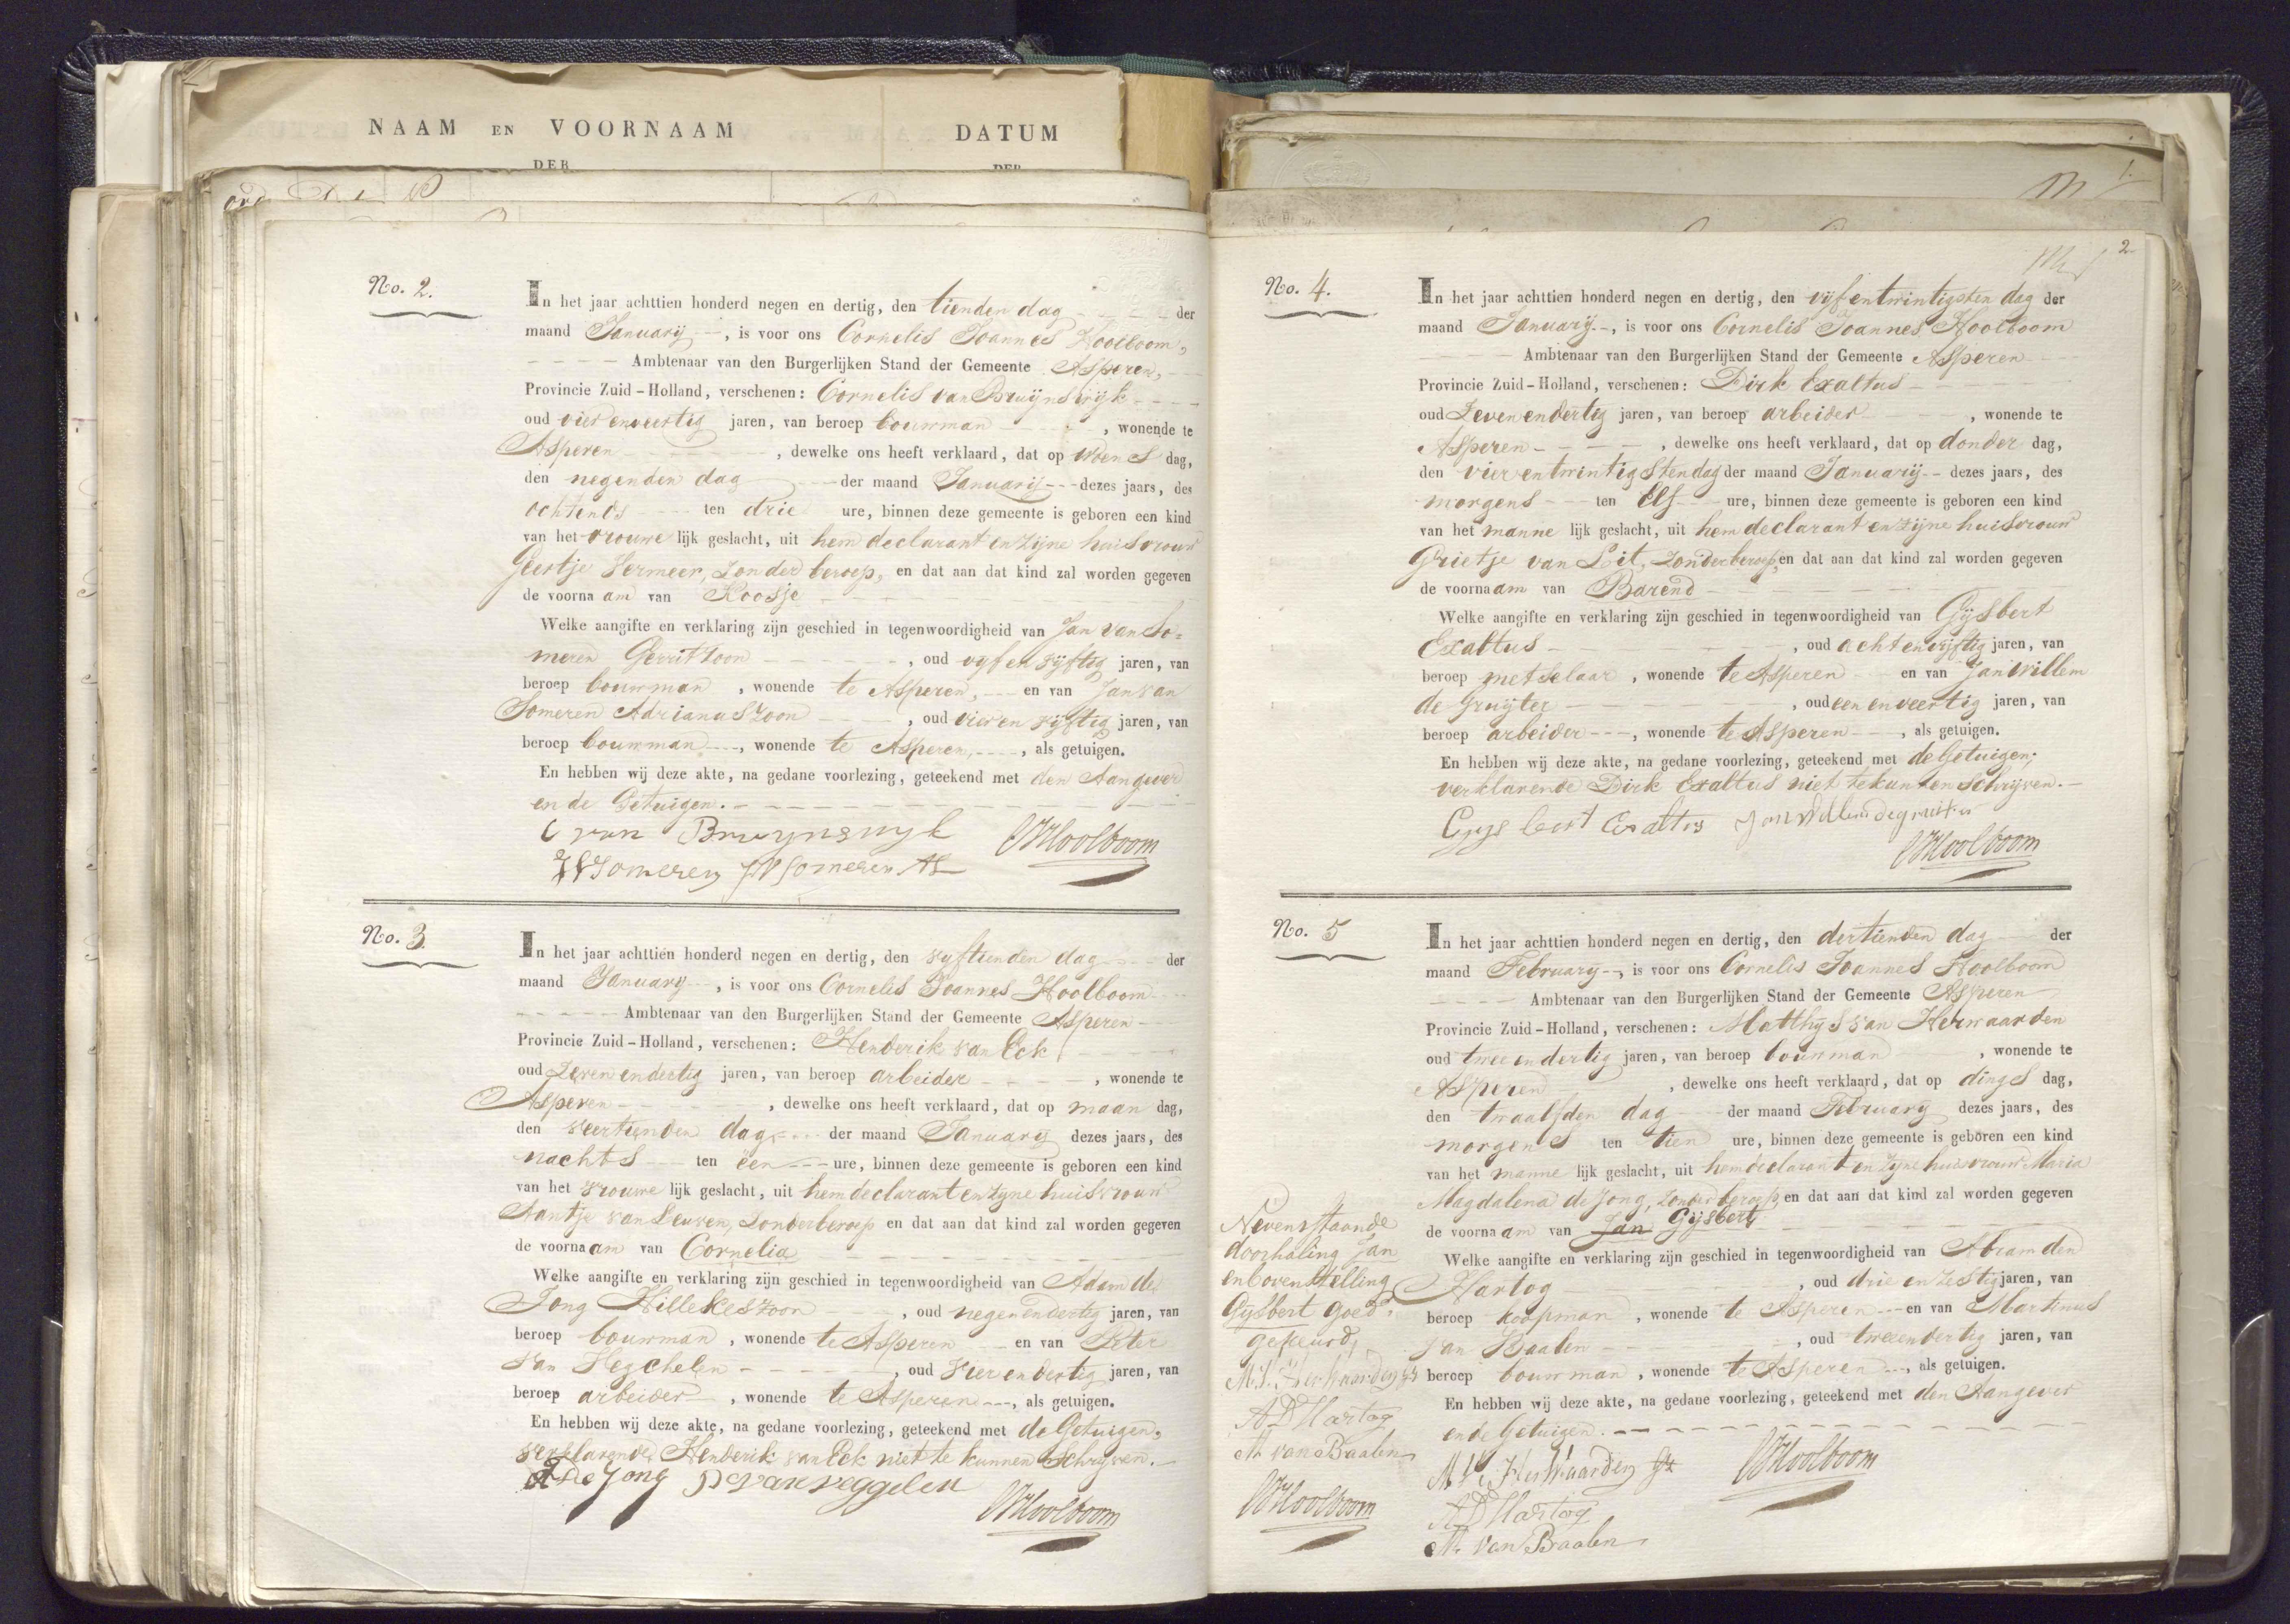 NAAM EN VOORNAAM
DER
DATUM
DER
No. 2.
In het jaar achttien honderd negen en dertig, den tienden dag der
maand Januarij, is voor ons Cornelis Joannes Hoolboom,
Ambtenaar van den Burgerlijken Stand der Gemeente Asperen,
Provincie Zuid-Holland, verschenen: Cornelis van Bruijnswijk
oud vier en veertig jaren, van beroep bouwman, wonende te
Asperen, dewelke ons heeft verklaard, dat op woens dag,
den negenden dag der maand Januarij dezes jaars, des
ochtends ten drie ure, binnen deze gemeente is geboren een kind
van het vrouwe lijk geslacht, uit hem declarant en zijne huisvrouw
Geertje Vermeer, zonder beroep, en dat aan dat kind zal worden gegeven
de voorna am van Roosje
Welke aangifte en verklaring zijn geschied in tegenwoordigheid van Jan van So=
meren Gerritzoon, oud vyf en vijftig jaren, van
beroep bouwman, wonende te Asperen, en van Jan van
Someren Adrianuszoon, oud vier en vijftig jaren, van
beroep bouwman, wonende te Asperen, als getuigen.
En hebben wij deze akte, na gedane voorlezing, geteekend met den Aangever
en de Getuigen.
C van Bruynswyk
CJHoolboom
JVSomeren JVSomeren AZ
No. 3.
In het jaar achttien honderd negen en dertig, den vyftienden dag der
maand January, is voor ons Cornelis Joannes Hoolboom
Ambtenaar van den Burgerlijken Stand der Gemeente Asperen
Provincie Zuid-Holland, verschenen: Henderik van Eck
oud Zeven en dertig jaren, van beroep arbeider, wonende te
Asperen, dewelke ons heeft verklaard, dat op maan dag,
den veertienden dag der maand January dezes jaars, des
nachts ten een ure, binnen deze gemeente is geboren een kind
van het vrouwe lijk geslacht, uit hem declarant en zyne huisvrouw
Aantje van Leuven, Zonder beroep en dat aan dat kind zal worden gegeven
de voorna am van Cornelia
Welke aangifte en verklaring zijn geschied in tegenwoordigheid van Adam de
Jong Hillekeszoon, oud negen en dertig jaren, van
beroep bouwman, wonende te Asperen en van Peter
van Hegchelen, oud vier en dertig jaren, van
beroep arbeider, wonende te Asperen, als getuigen.
En hebben wij deze akte, na gedane voorlezing, geteekend met de Getuigen,
verklarende Henderik van Eck niet te kunnen Schryven.
A De Jong P van veggelen
CJHoolboom
2
No. 4.
In het jaar achttien honderd negen en dertig, den vijf en twintigsten dag der
maand Januarij, is voor ons Cornelis Joannes Hoolboom
Ambtenaar van den Burgerlijken Stand der Gemeente Asperen
Provincie Zuid-Holland, verschenen: Dirk Exaltus
oud Zeven en dertig jaren, van beroep arbeider, wonende te
Asperen, dewelke ons heeft verklaard, dat op donder dag,
den vier en twintigsten dag der maand Januarij dezes jaars, des
morgens ten Elf ure, binnen deze gemeente is geboren een kind
van het manne lijk geslacht, uit hem declarant en zijne huisvrouw
Grietje van Pit, zonder beroep, en dat aan dat kind zal worden gegeven
de voorna am van Barend
Welke aangifte en verklaring zijn geschied in tegenwoordigheid van Gijsbert
Exaltus, oud acht en vijftig jaren, van
beroep metselaar, wonende te Asperen en van Jan Willem
de Gruijter, oud een en veertig jaren, van
beroep arbeider, wonende te Asperen, als getuigen.
En hebben wij deze akte, na gedane voorlezing, geteekend met de Getuigen;
verklarende Dirk Exaltus niet te kunnen schrijven.
Gysbert Exaltus Jan Willem de gruiter
CJHoolboom
No. 5
In het jaar achttien honderd negen en dertig, den dertienden dag der
maand February, is voor ons Cornelis Joannes Hoolboom
Ambtenaar van den Burgerlijken Stand der Gemeente Asperen
Provincie Zuid-Holland, verschenen: Matthys van Herwaarden
oud twee en dertig jaren, van beroep bouwman, wonende te
Asperen, dewelke ons heeft verklaard, dat op dings dag,
den twaalfden dag der maand February dezes jaars, des
morgens ten tien ure, binnen deze gemeente is geboren een kind
van het manne lijk geslacht, uit hem declarant en zyne huisvrouw Maria
Magdalena de Jong, zonder beroep, en dat aan dat kind zal worden gegeven
de voorna am van Jan Gijsbert
Welke aangifte en verklaring zijn geschied in tegenwoordigheid van Abram den
Hartog, oud drie en zestig jaren, van
beroep koopman, wonende te Asperen en van Martinus
van Baalen, oud twee en dertig jaren, van
beroep bouwman, wonende te Asperen, als getuigen.
En hebben wij deze akte, na gedane voorlezing, geteekend met den Aangever
en de Getuigen.
M V HerWaarden
CJHoolboom
A D Hartog
M. van Baalen
Nevensstaande
doorhaling Jan
en bovenstelling
Gijsbert goed=
gekeurd,
M. V. HerWaarden
A D Hartog
M van Baalen
CJHoolboom